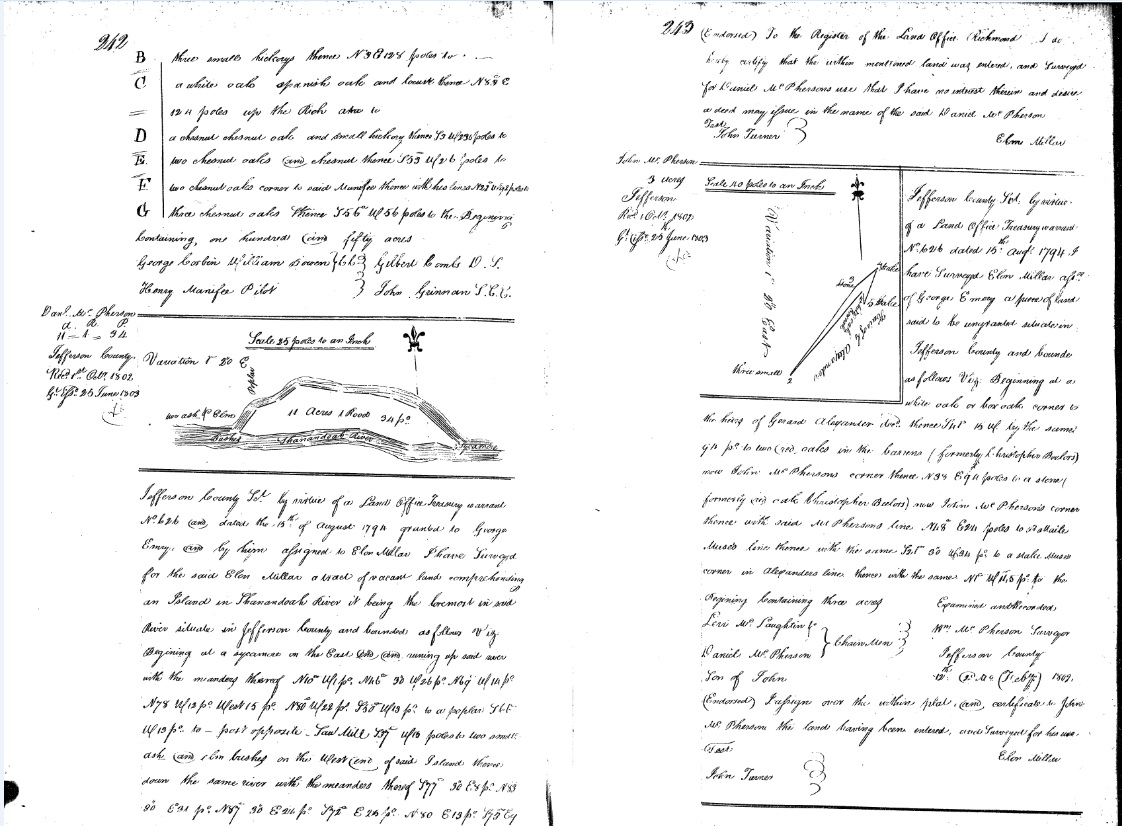 242
B three small hickorys thence N 3 E 128 poles to
C a white oak spanish oak and locust thence N 83 E
= 124 poles up the Rich
D a chesnut chesnut oak and small hickory thence poles to
E two chesnut oaks (and) chesnut thence S 53 W 26 poles to
F two chesnut oaks corner to said Manifee thence with his lines
G three chesnut oaks thence S 56 W 56 poles to the Begining
Containing, one hundred (and) fifty acres
George Corbin William Bowen } Gilbert Combs D. S.
Henry Manifee Pilot } John Grinnan S.C.C.
Danl. Mc. Pherson
a. R. P.
11 = 1 = 34
Jefferson County
Rec. 1st Octr. 1802
25 June 1803
Scale 35 poles to an Inch
Variation 1° 20 E
Poplar
two ash & Elm
Bushes
11 Acres 1 Rood 34 ps.
Shanandoah River
Sycamore
Jefferson County Sct. by virtue of a Land Office Treasury warrant
No. 626 (and) dated the 15th of August 1794 granted to George
Emry, (and) by him assigned to Elon Millar I have Surveyd
for the said Elon Millar a tract of vacant land comprehending
an Island in Shanandoah River it being the in said
River situate in Jefferson County and bounded as follows Viz
Begining at a sycamore on the East end (and) runing up said river
with the meanders thereof N 10 W ps. N 46 30 W 26 ps. N 69 W 14 ps.
N 78 W 13 ps. West 15 ps. N 80 W 22 ps. S 50 W 13 ps. to a poplar
W 19 ps. to – post opposite Saw Mill poles to two small
ash (and) elm bushes on the West end of said Island thence
down the same river with the meanders thereof S 77 30 E 8 ps. N 83
30 E 31 ps. N 87 30 E 24 ps. S 72 E 28 ps. N 80 E 13 ps. S 75 E
243
(Endorsed) To the Register of the Land Office Richmond I do
hereby certify that the within mentioned land was entered, and Surveyd
for Daniel Mc Phersons use that I have no interest therein and desire
a deed may issue in the name of the said Daniel Mc Pherson
Teste
John Turner } Elon Millar
John Mc. Pherson
3 acres
Jefferson
Rec. 1 Octr. 1802
25 June 1803
Scale 40 poles to an Inch
Variation 1° 20 East
Stake
Stone
Stake
three small
Jefferson County Sct. by virtue
of a Land Office Treasury warrant
No. 626 dated 15th Augt. 1794 I
have Surveyd Elon Millar assee.
of George Emery a piece of land
said to be ungranted situate in
Jefferson County and bounded
as follows Viz. Beginning at a
white oak or box oak corner to
the heirs of Gerard Alexander decd. thence 15 W by the same
94 ps. to two (red) oaks in the barrens (formerly Christopher Beelors)
now John Mc Phersons corner thence N 38 E 94 poles to a stone (
formerly red oak Christopher Beelors) now John Mc Pherson's corner
thence with said Mc Phersons line E 24 poles to
Muses line thence with the same 30 W 34 ps. to a stake Muses
corner in Alexanders line, thence with the same ps. to the
Begining Containing three acres
Levi Mc. Laughlin
Daniel Mc. Pherson } Chain Men
Son of John
Examined and Recorded
Wm. Mc Pherson Surveyor
Jefferson County
1802.
(Endorsed) I assign over the within plat, (and) certificate to John
Mc Pherson the land having been entered, and Surveyed for his use
Test
John Turner } Elon Millar